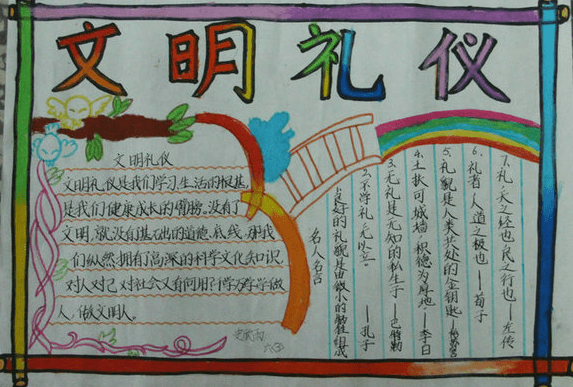 文明礼仪
文明礼仪
文明礼仪是我们学习、生活的根基,
是我们健康成长的臂膀。没有了
文明,就没有基础的道德底线,那我
们纵然拥有高深的科学文化知识,
对人对己对社会又有何用?学学做
人,做文明人。
六
名人名言
良好的礼貌是由微小的牺牲组成
2、不学礼,无以立。——孔子
3、无礼是无知的私生子——巴特勒
4、土扶可城墙,积德为厚地——李白
5、礼貌是人类共处的金钥匙——松苏内
6、礼者,人道之极也——荀子
7、礼,天之经也,民之行也——左传